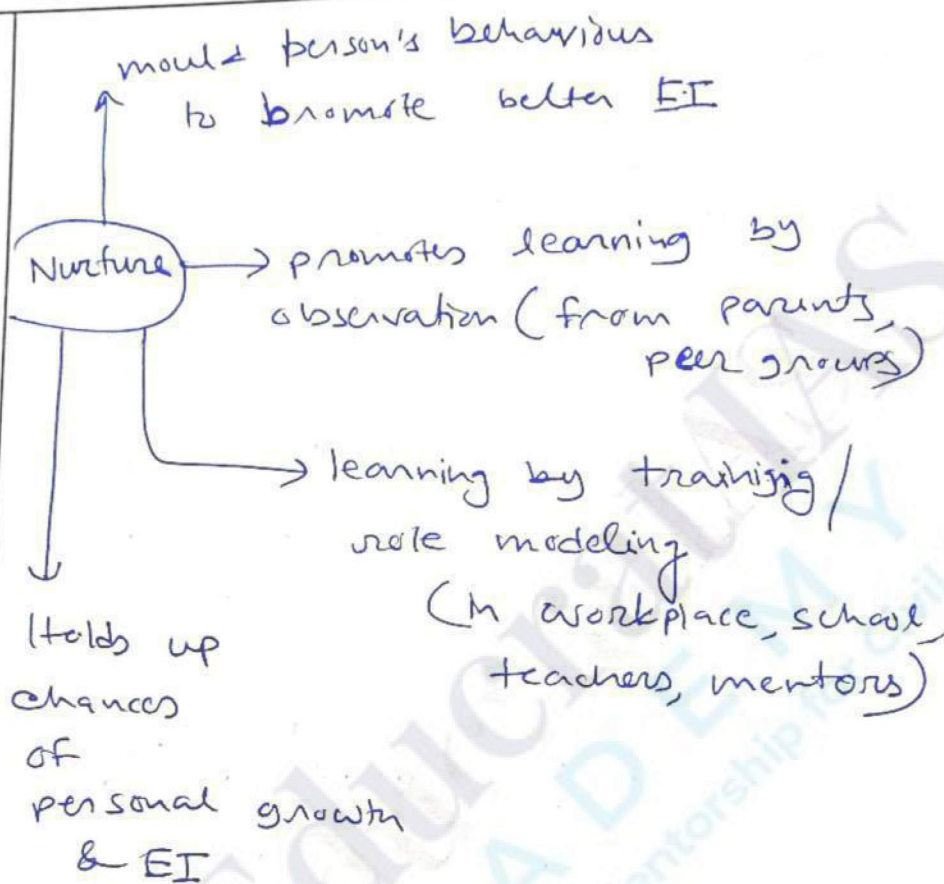 mould person's behaviour
to promote better EI
Nurture
promotes learning by
observation (from parents,
peer groups)
learning by training/
role modeling
(in workplace, school,
teachers, mentors)
Holds up
chances
of
personal growth
& EI
EducraIAS
ADEMY
entorship for Civil